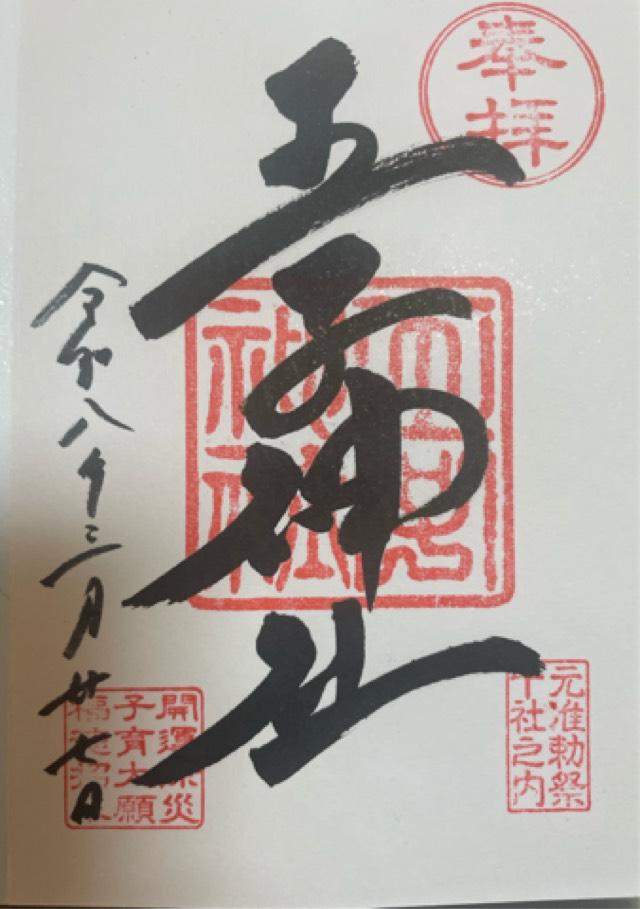 奉拝
王子神社
元准勅祭
十社之内
令和八年三月廿七日
開運除災
子育大願